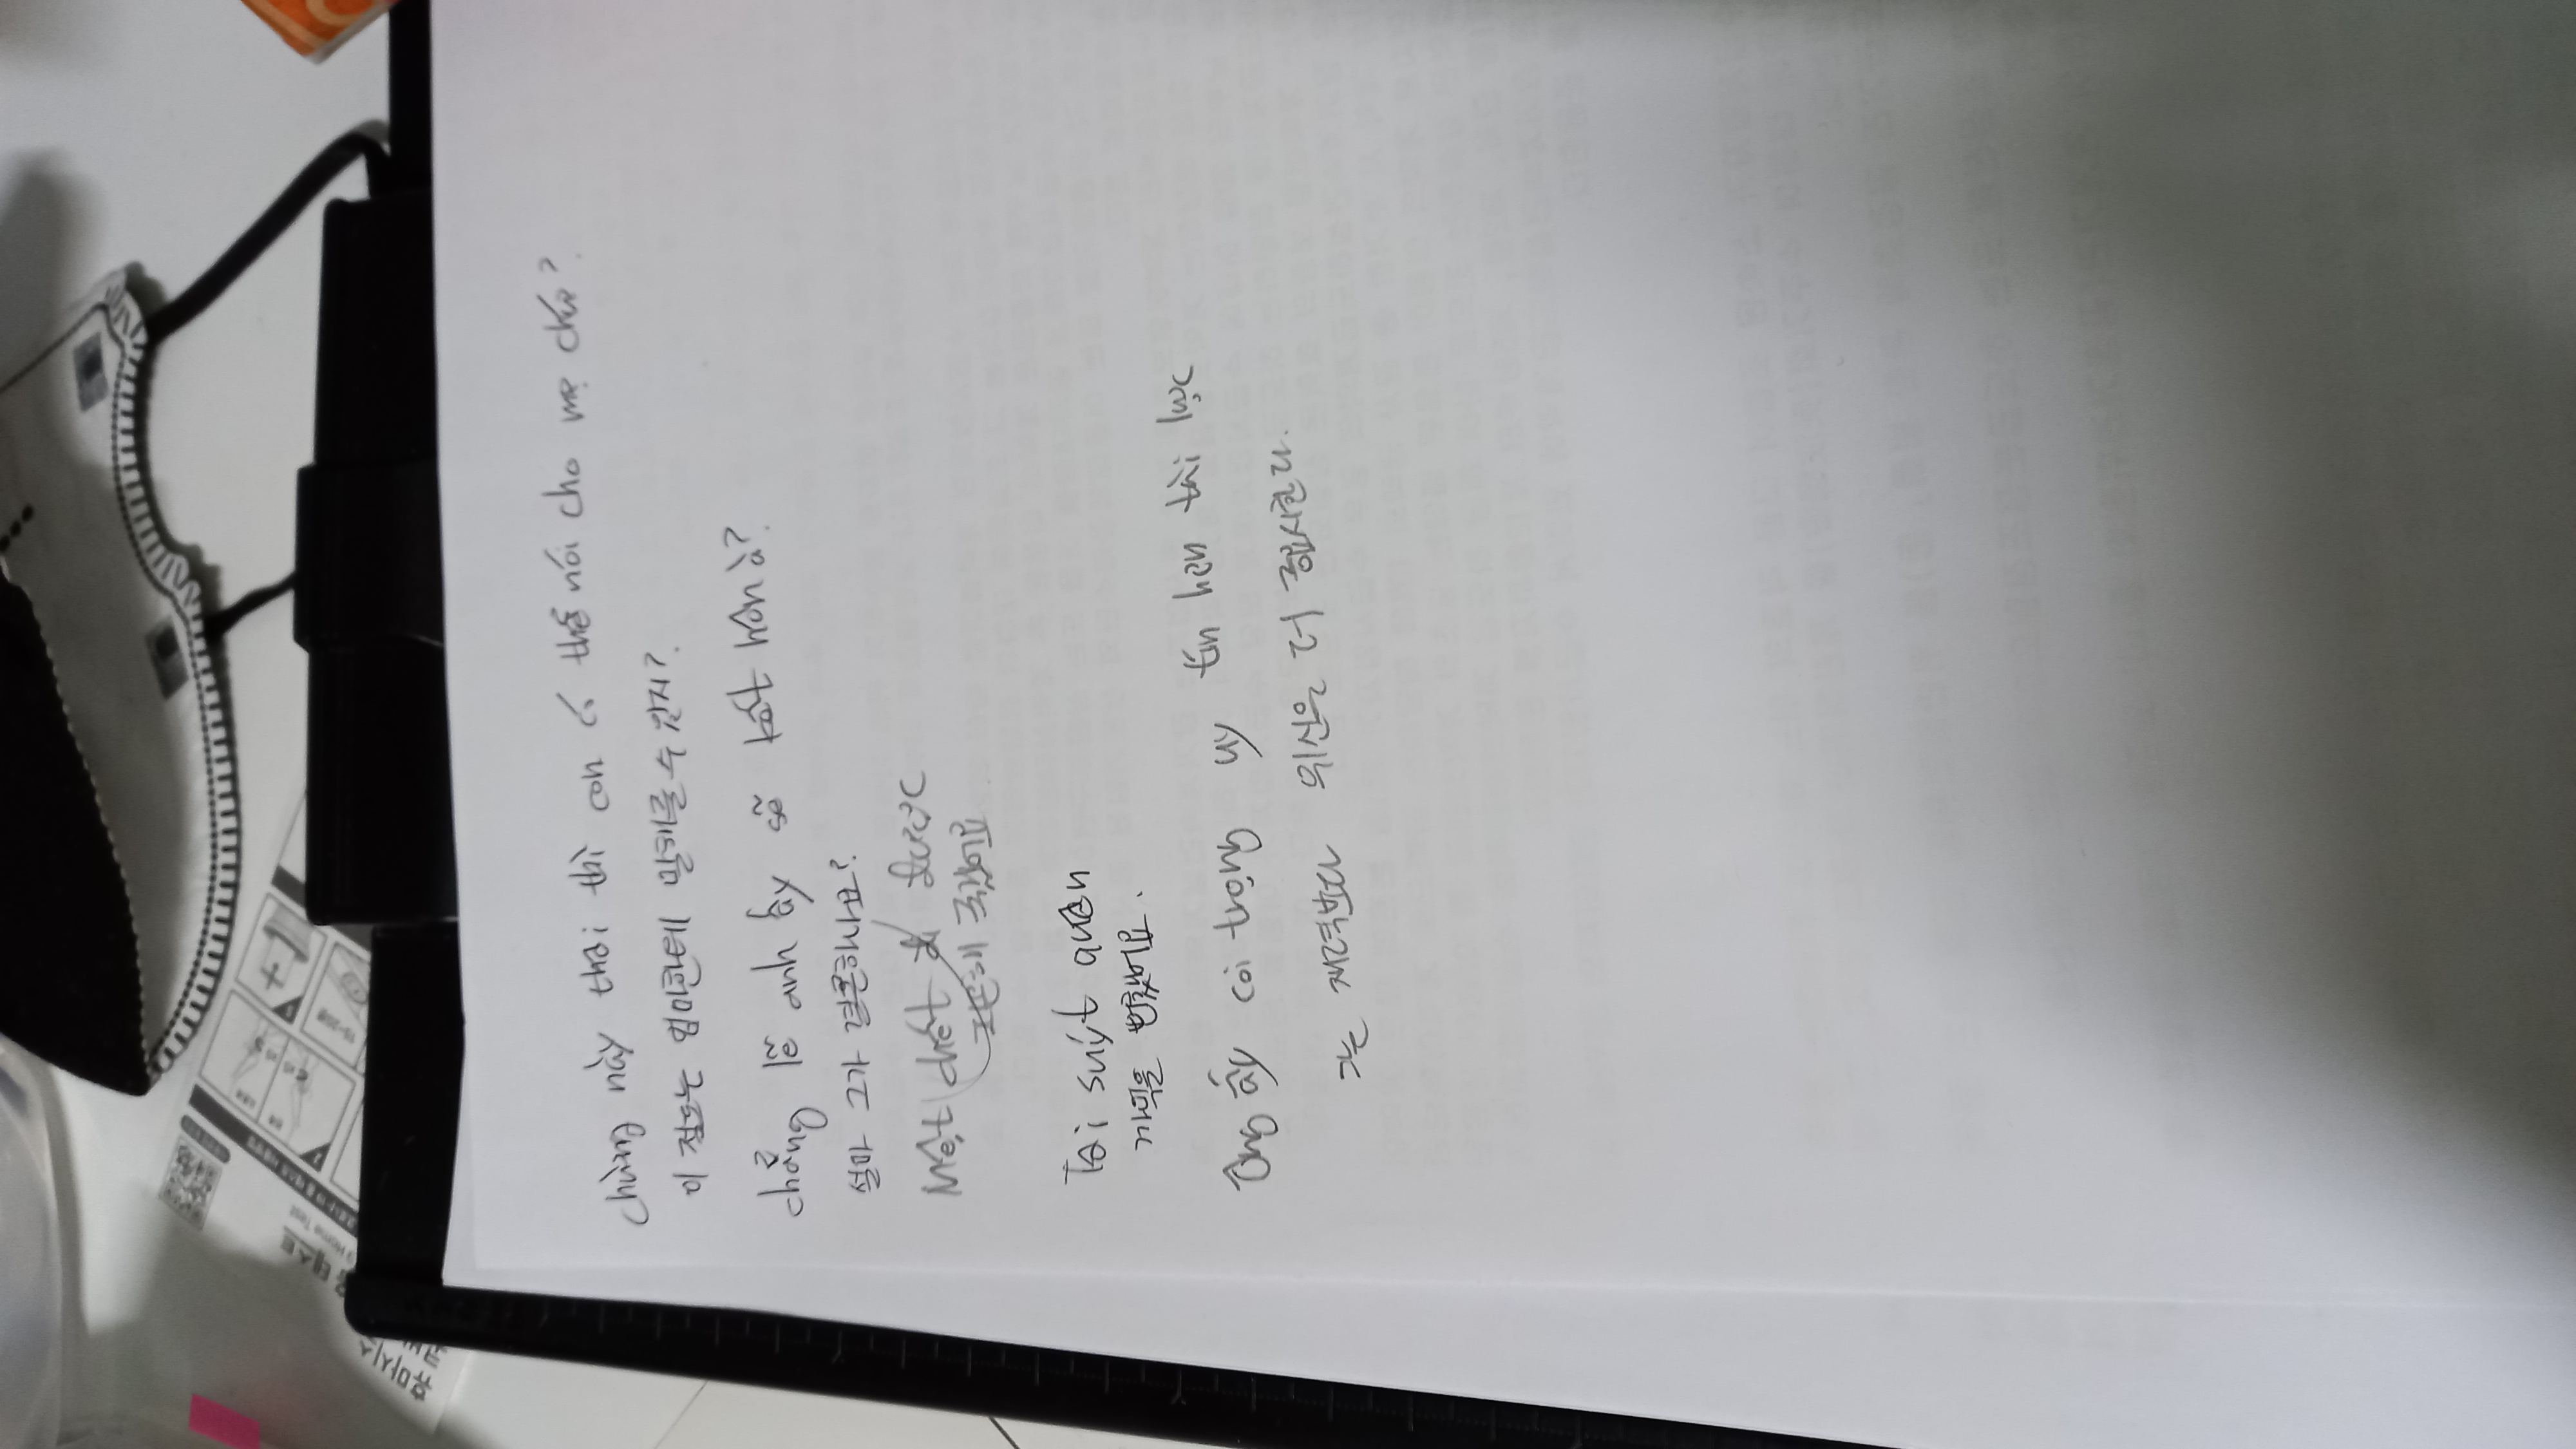 chừng này tuổi thì con có thể nói cho mẹ chứ?
이 정도는 엄마한테 말해줄 수 있지?
chẳng lẽ anh ấy sẽ kết hôn à?
설마 그가 결혼하나요?
Mệt chết đi được
피곤해 죽겠어요
Tôi suýt quên
까먹을 뻔했어요.
Ông ấy coi trọng uy tín hơn tài lực
그는 재력보다 위신을 더 중시한다.
Home Test
테스트
휴마시스